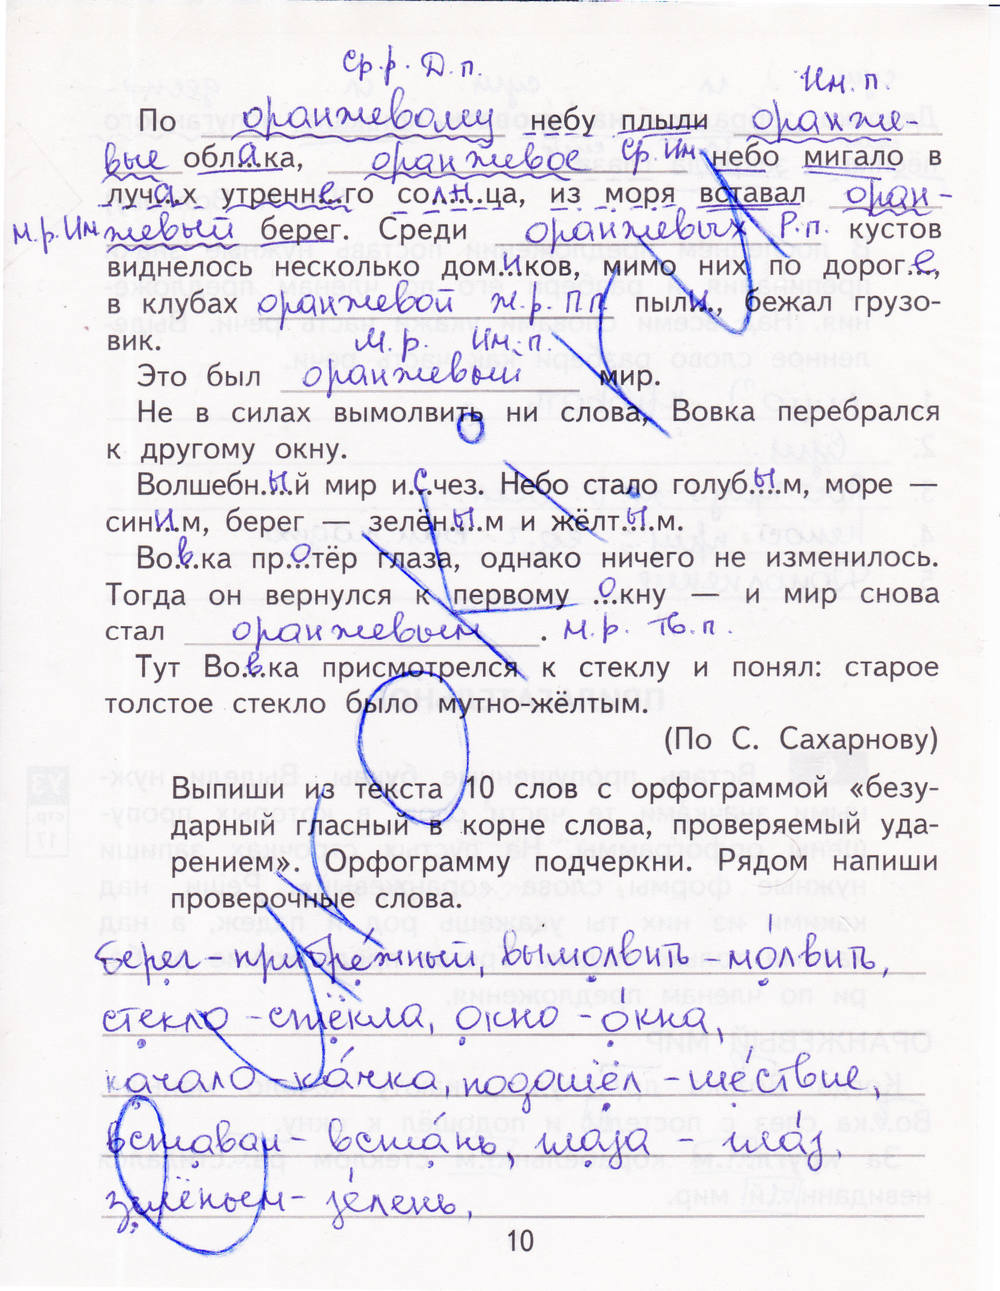 Ср.р. Д.п.
Им.п.
По оранжевому небу плыли оранже-
вые обл.а.ка, оранжевое ср. Им небо мигало в
луч.а.х утренн.е.го со.лн.ца, из моря вставал оран-
м.р. Им жевый берег. Среди оранжевых Р.п. кустов
виднелось несколько дом.и.ков, мимо них по дорог.е.,
в клубах оранжевой ж.р. П.п. пыл.и., бежал грузо-
вик. М.р. Им.п.
Это был оранжевый мир.
Не в силах вымолвить ни слова, Вовка перебрался
к другому окну.
Волшебн.ы.й мир и.с.чез. Небо стало голуб.ы.м, море —
син.и.м, берег — зелён.ы.м и жёлт.ы.м.
Во.в.ка пр.о.тёр глаза, однако ничего не изменилось.
Тогда он вернулся к первому .о.кну — и мир снова
стал оранжевым. м.р. Тв.п.
Тут Во.в.ка присмотрелся к стеклу и понял: старое
толстое стекло было мутно-жёлтым.
(По С. Сахарнову)
Выпиши из текста 10 слов с орфограммой «безу-
дарный гласный в корне слова, проверяемый уда-
рением». Орфограмму подчеркни. Рядом напиши
проверочные слова.
Берег – прибрежный, вымолвить – мóлвить,
стекло – стёкла, окно – óкна,
качало – кáчка, подошёл – шéствие,
вставал – встáнь, глаза – глáз,
зелёным – зéлень,
10